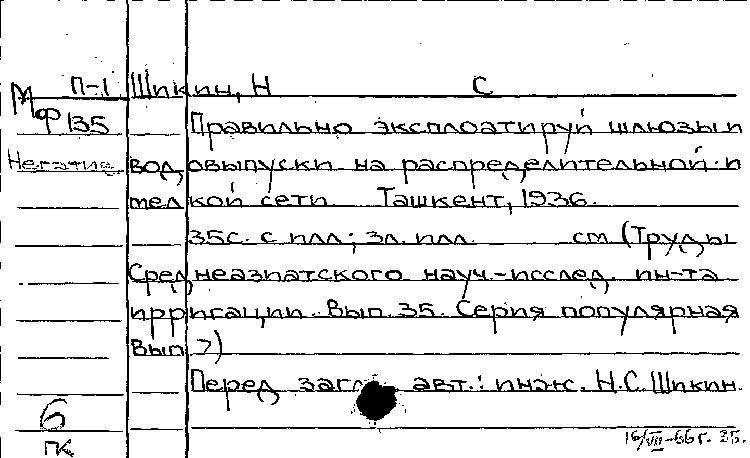 П-1 Шикин, Н С
Мф 135 Правильно эксплоатируй шлюзы и
Негатив водовыпуски на распределительной и
мелкой сети. Ташкент, 1936.
35с. с илл; 3л. илл. см (Труды
Среднеазиатского науч.-исслед. ин-та
ирригации. Вып. 35. Серия популярная
Вып. 7)
Перед загл. авт.: инж. Н.С. Шикин.
6
ПК
16/VII-66г. 35.